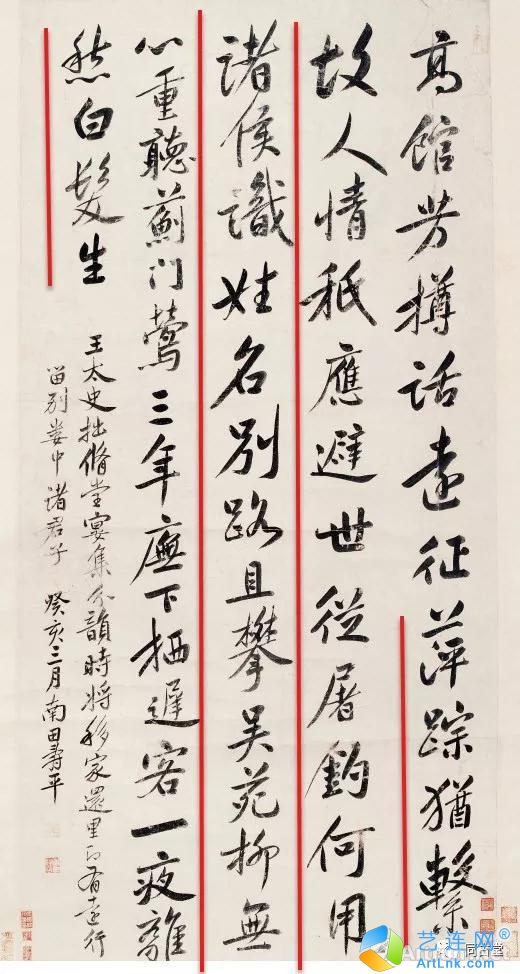 高館芳樽話遠征萍踪猶繫
故人情秖應避世從屠釣何用
諸侯識姓名別路且攀吴苑柳無
心重聽薊门鶯三年廡下栖遲客一夜離
愁白髮生
王太史拙脩堂宴集分韻時將移家還里即有遠行
留别婁中諸君子 癸亥三月南田壽平
艺连网
ArtLnk.com